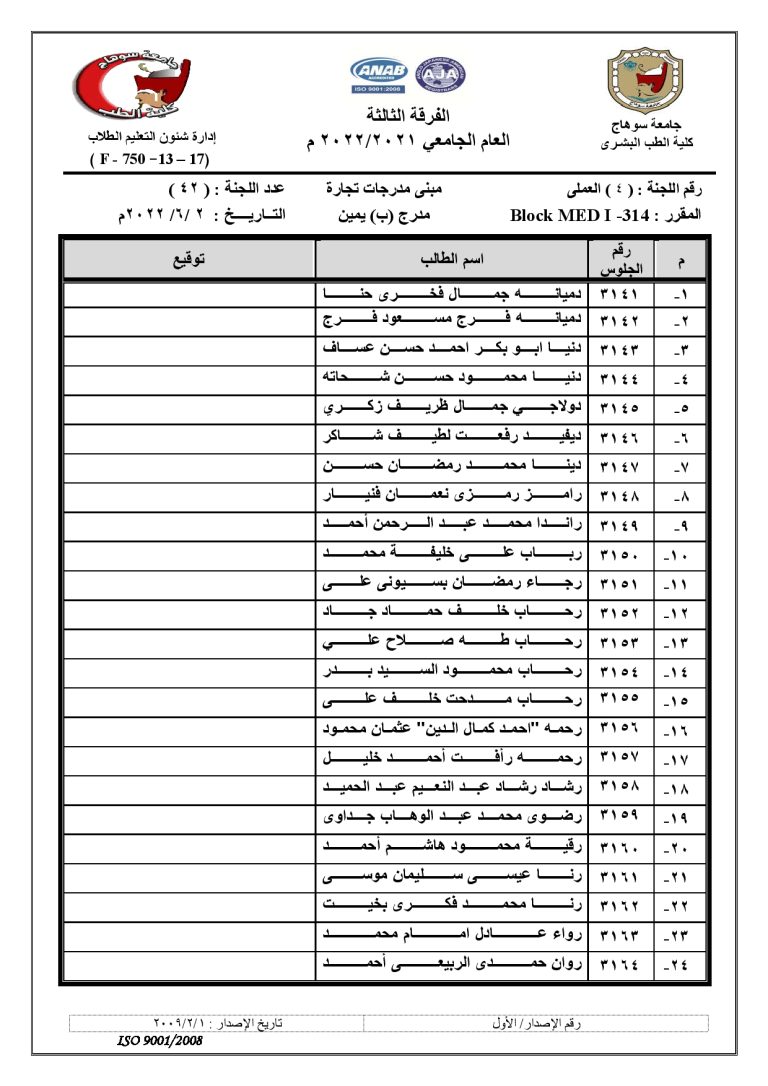 جامعة سوهاج
كلية الطب
ANAB
ACCREDITED
ISO 9001:2008
AJA
ANGLO JAPANESE AMERICAN
REGISTRARS
جامعة سوهاج
كلية الطب البشرى
الفرقة الثالثة
العام الجامعي ٢٠٢٢/٢٠٢١ م
إدارة شئون التعليم الطلاب
( F - 750 –13 – 17)
رقم اللجنة : ( ٤ ) العملى مبنى مدرجات تجارة عدد اللجنة : ( ٤٢ )
المقرر : Block MED I -314 مدرج (ب) يمين التـاريـــخ : ٢ /٦ /٢٠٢٢م
م رقم الجلوس اسم الطالب توقيع
١- ٣١٤١ دميانه جمال فخرى حنا
٢- ٣١٤٢ دميانه فرج مسعود فرج
٣- ٣١٤٣ دنيا ابو بكر احمد حسن عساف
٤- ٣١٤٤ دنيا محمود حسن شحاته
٥- ٣١٤٥ دولاجي جمال ظريف زكري
٦- ٣١٤٦ ديفيد رفعت لطيف شاكر
٧- ٣١٤٧ دينا محمد رمضان حسن
٨- ٣١٤٨ رامز رمزى نعمان فنيار
٩- ٣١٤٩ راندا محمد عبد الرحمن أحمد
١٠- ٣١٥٠ رباب على خليفة محمد
١١- ٣١٥١ رجاء رمضان بسيونى على
١٢- ٣١٥٢ رحاب خلف حماد جاد
١٣- ٣١٥٣ رحاب طه صلاح علي
١٤- ٣١٥٤ رحاب محمود السيد بدر
١٥- ٣١٥٥ رحاب مدحت خلف على
١٦- ٣١٥٦ رحمه "احمد كمال الدين" عثمان محمود
١٧- ٣١٥٧ رحمه رأفت أحمد خليل
١٨- ٣١٥٨ رشاد رشاد عبد النعيم عبد الحميد
١٩- ٣١٥٩ رضوى محمد عبد الوهاب جداوى
٢٠- ٣١٦٠ رقية محمود هاشم أحمد
٢١- ٣١٦١ رنا عيسى سليمان موسى
٢٢- ٣١٦٢ رنا محمد فكرى بخيت
٢٣- ٣١٦٣ رواء عادل امام محمد
٢٤- ٣١٦٤ روان حمدى الربيعى أحمد
رقم الإصدار/ الأول تاريخ الإصدار : ٢٠٠٩/٢/١
ISO 9001/2008